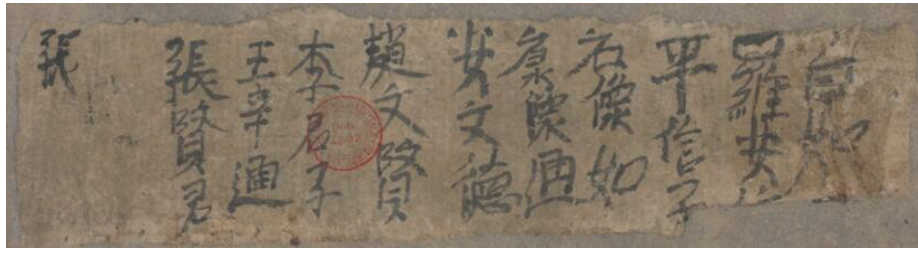 羅女
平信子
石懷如
泉懷通
安文德
趙文賢
李君子
王辛通
張賢君
張